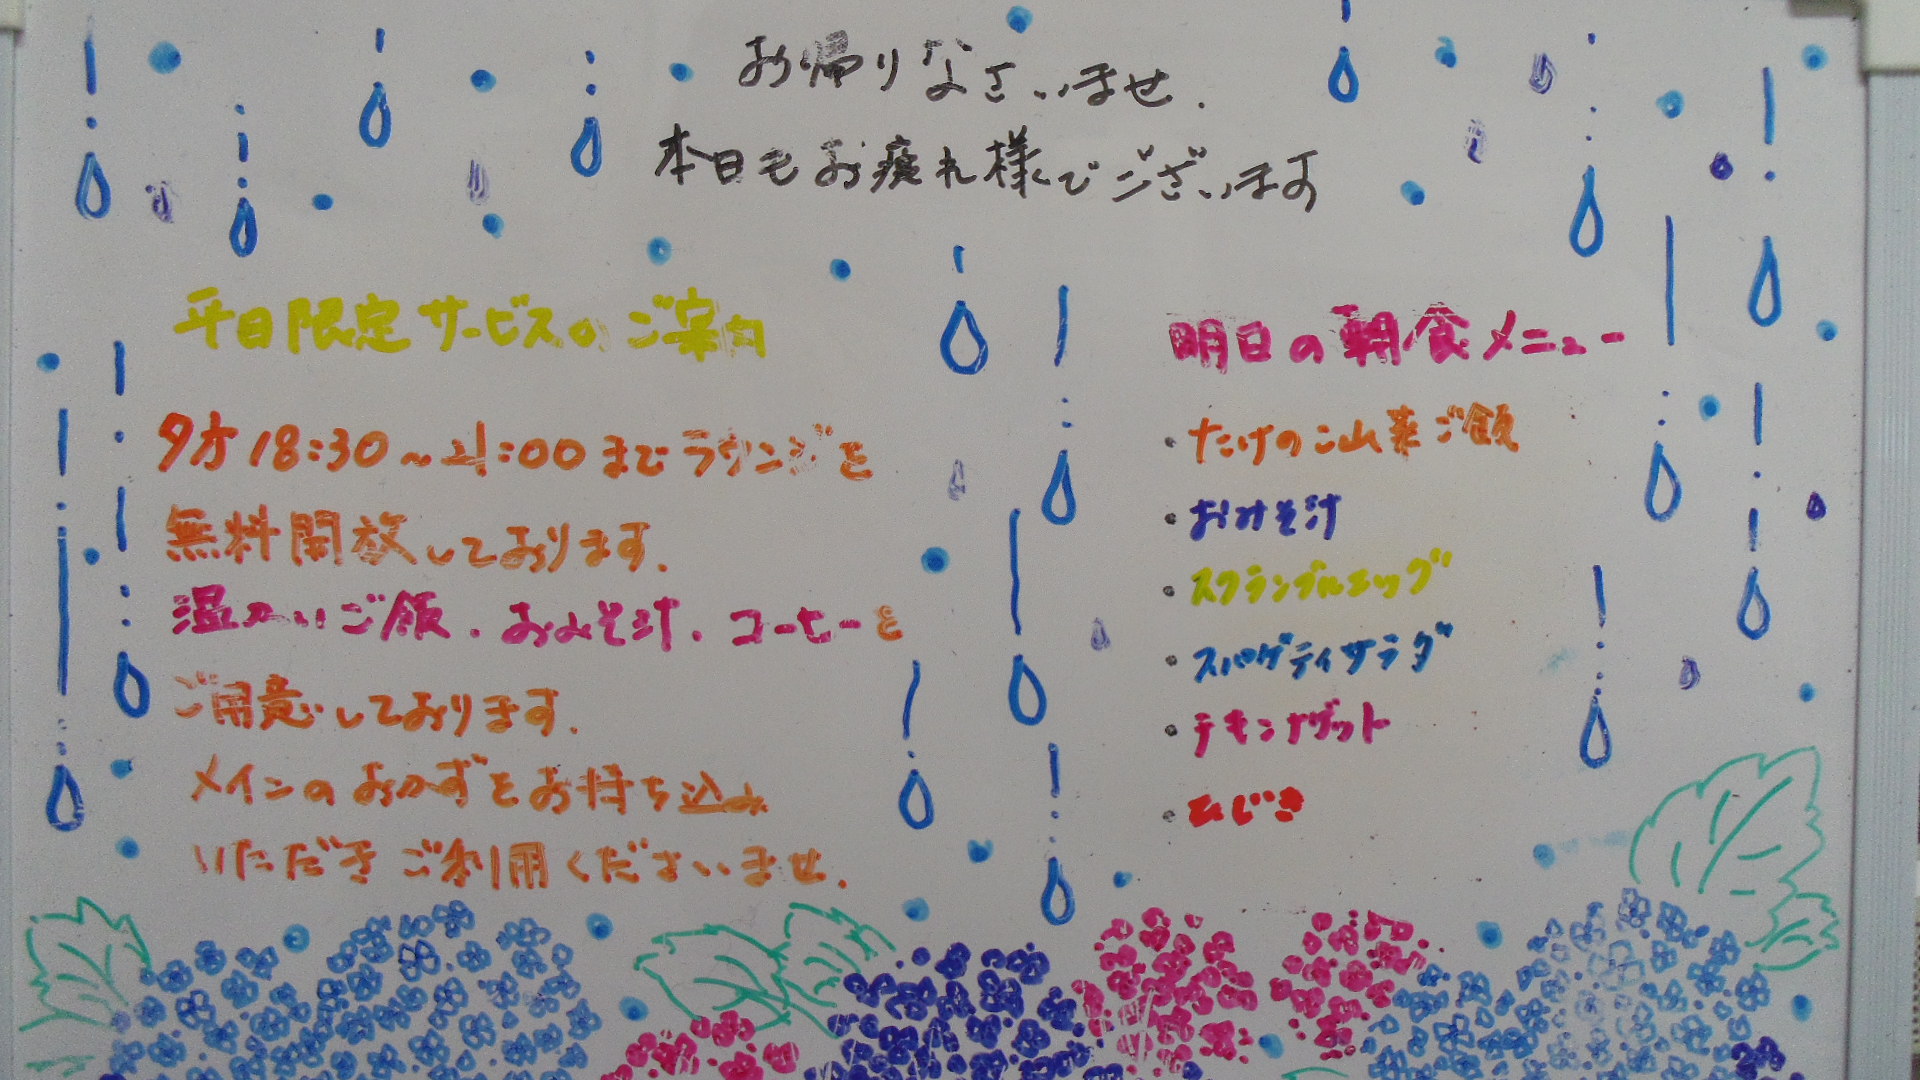 お帰りなさいませ.
本日もお疲れ様でございます
平日限定サービスのご案内
夕方18:30～21:00までラウンジを
無料開放しております.
温かいご飯.おみそ汁.コーヒーを
ご用意しております.
メインのおかずをお持ち込み
いただきご利用くださいませ.
明日の朝食メニュー
・たけのこ山菜ご飯
・おみそ汁
・スクランブルエッグ
・スパゲティサラダ
・チキンナゲット
・ひじき